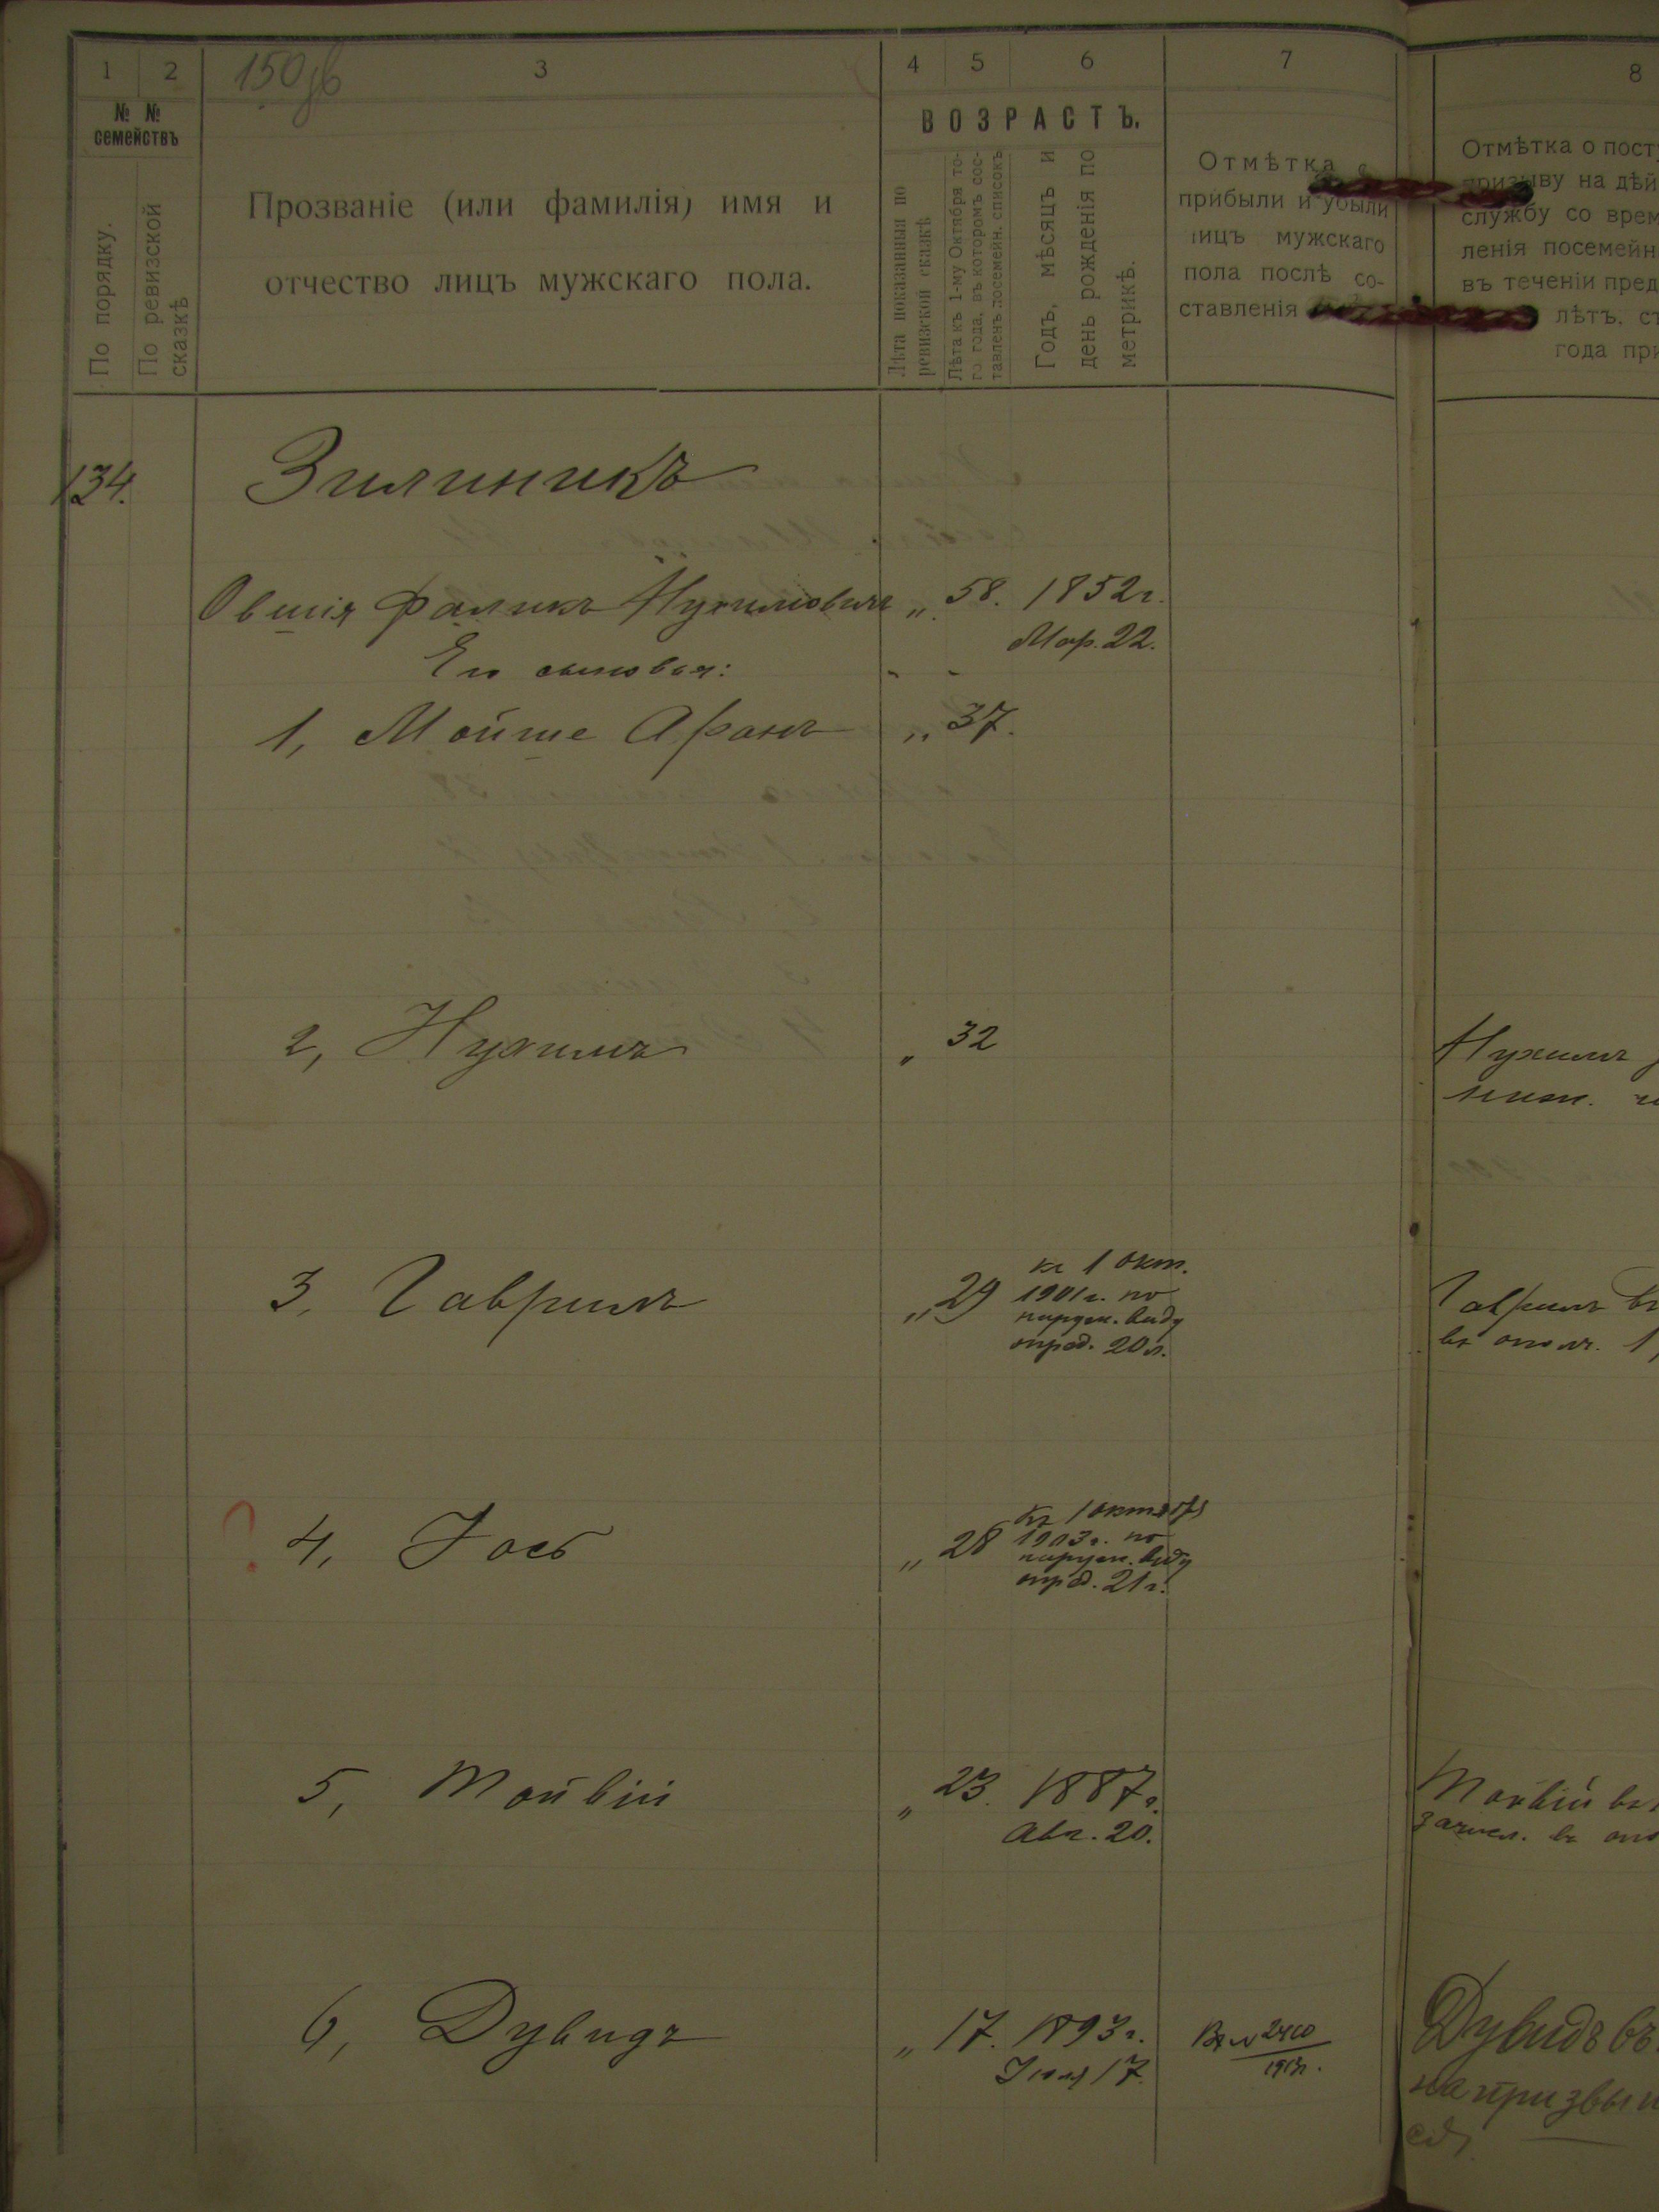 1 2 3 4 5 6 7 8
150 об
№ № семействъ
По порядку.
По ревизской сказкѣ
Прозваніе (или фамилія) имя и
отчество лицъ мужскаго пола.
ВОЗРАСТЪ.
Лѣта показанныя по
ревизской сказкѣ
Лѣта къ 1-му Октября то-
го года, въ которомъ сос-
тавленъ посемейн. списокъ
Годъ, мѣсяцъ и
день рожденія по
метрикѣ.
Отмѣтка о
прибыли и убыли
лицъ мужскаго
пола послѣ со-
ставленія
Отмѣтка о пост
призыву на дѣй
службу со врем
ленія посемейн
въ теченіи пред
лѣтъ. ст
года при
134. Зилиникъ
Овшія Фаликъ Нухимовичъ „ 58. 1852 г.
Мар. 22.
Его сыновья:
1, Мойше Аронъ „ 37.
2, Нухимъ „ 32
Нухимъ
3, Гаврилъ „ 29 къ 1 окт.
1901 г. по
наружн. виду
опред. 20 л.
Гаврилъ въ
въ ополч. 1
4, Іось „ 28 къ 1 октября
1903 г. по
наружн. виду
опред. 21 г.
5, Тойвій „ 23. 1887 г.
Авг. 20.
Тойвій въ
зачисл. въ опо
6, Дувидъ „ 17. 1893 г.
Іюля 17.
1913 г.
Дувидъ въ
на призывѣ